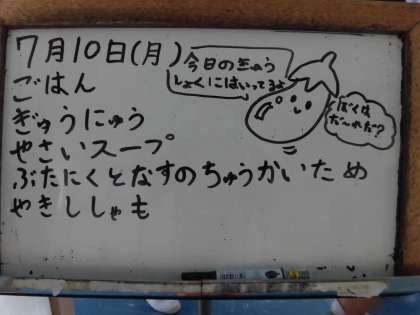 7月10日(月)
今日のきゅう
しょくにはいってるよ
ぼくは
だ〜れだ?
ごはん
ぎゅうにゅう
やさいスープ
ぶたにくとなすのちゅうかいため
やきししゃも